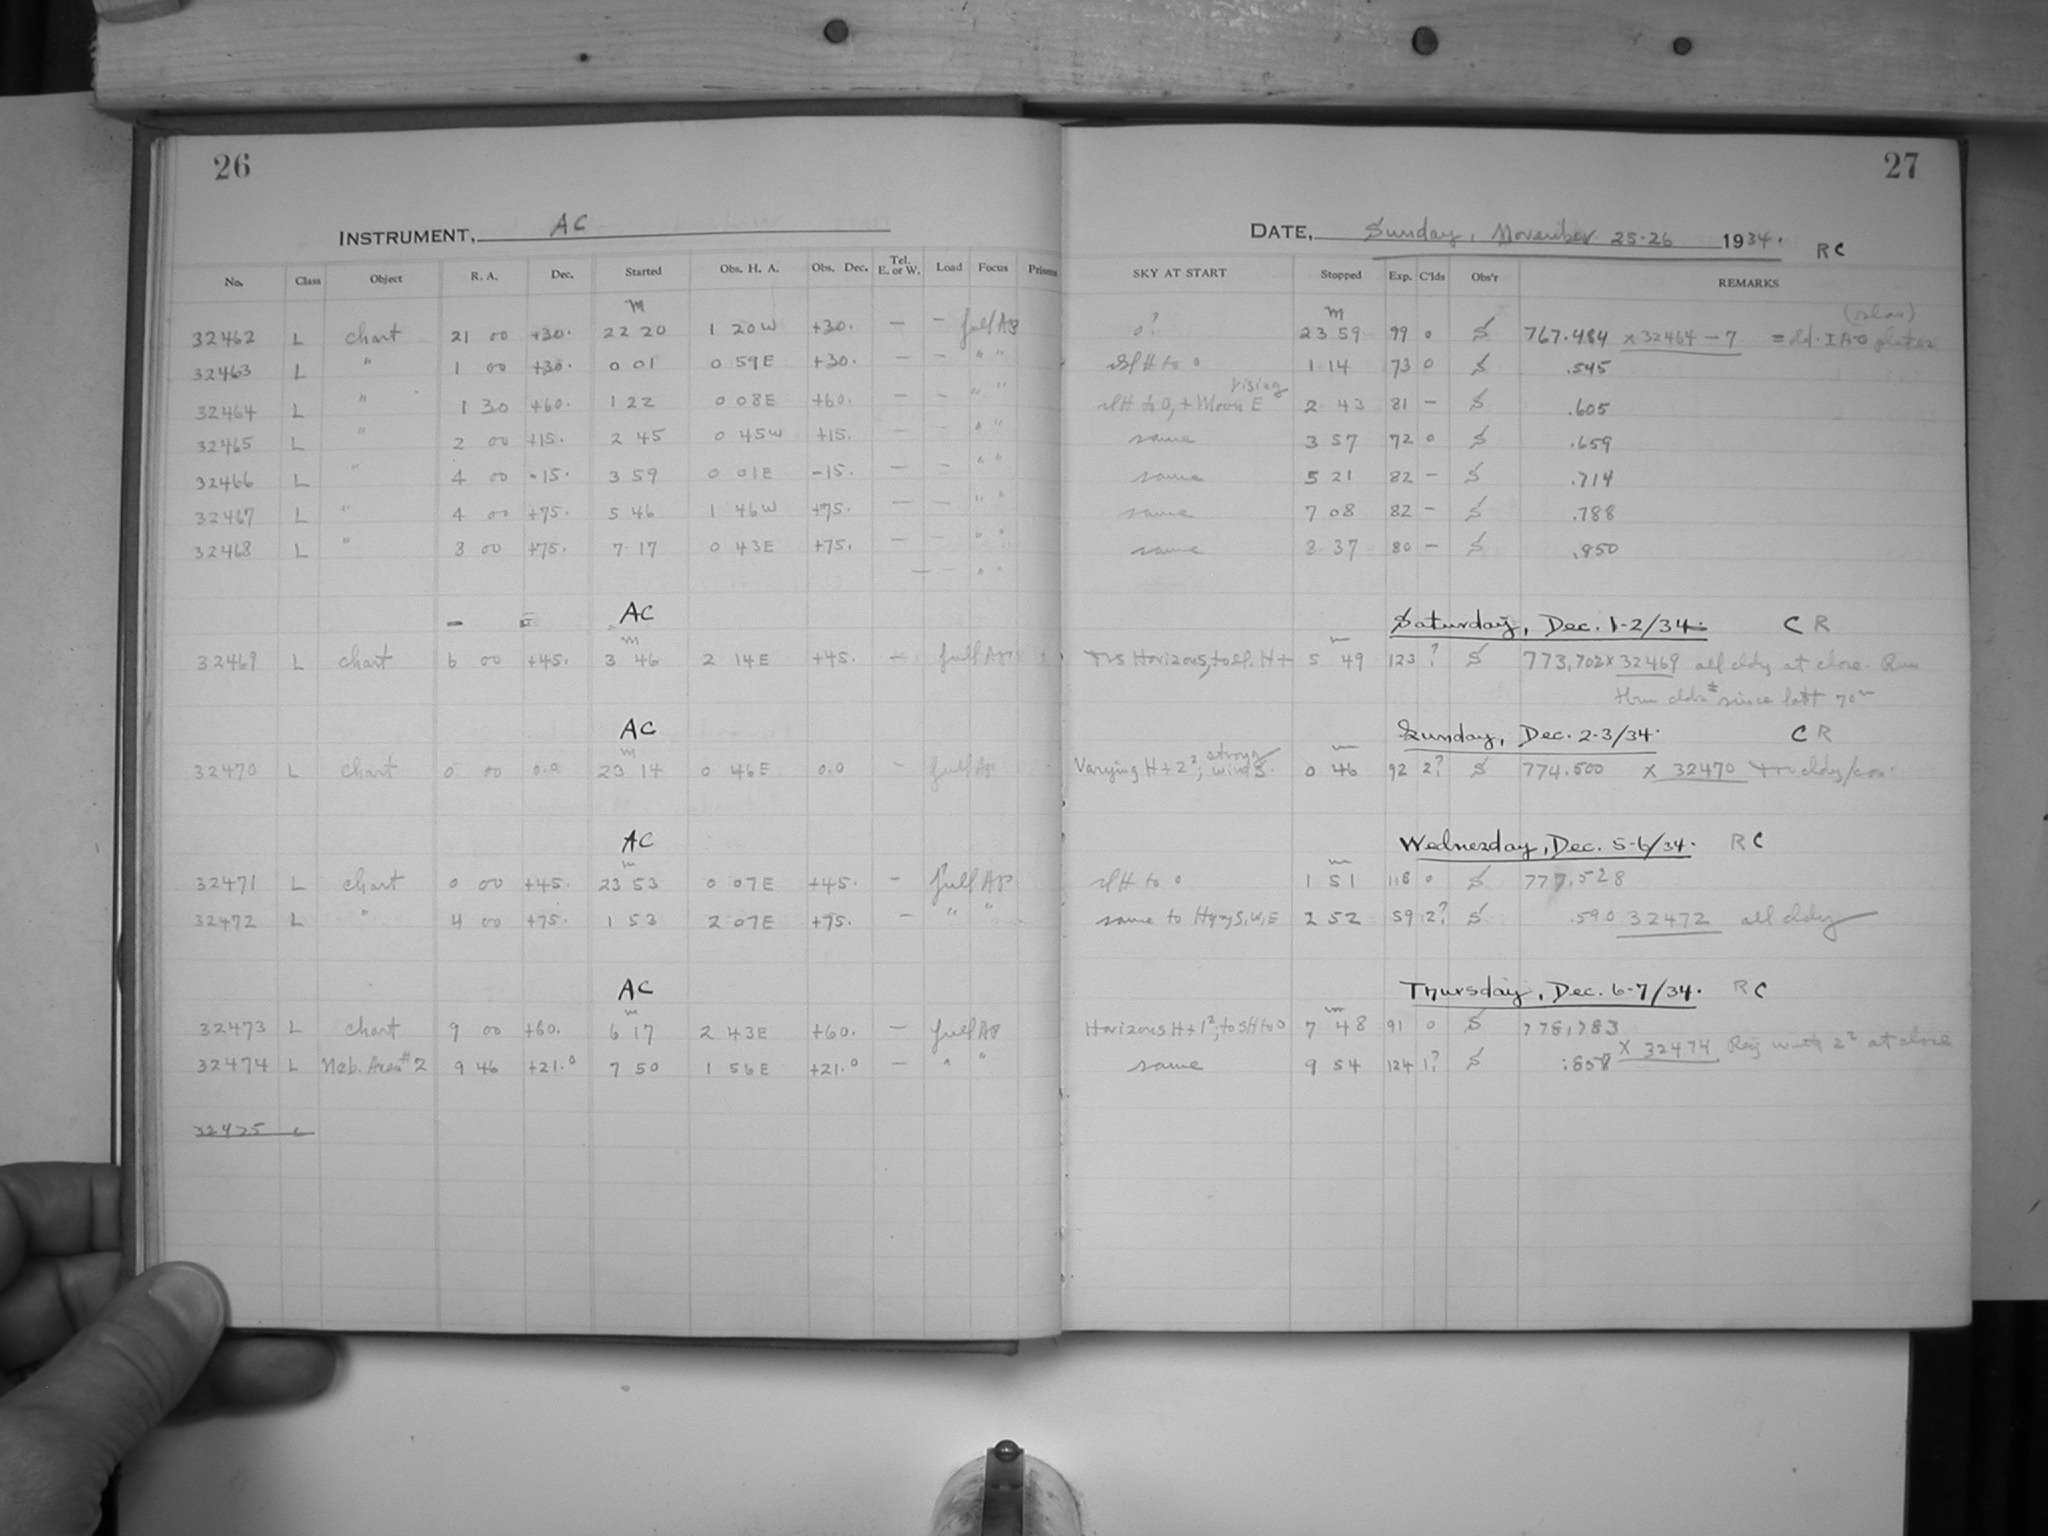 26
27
INSTRUMENT, AC
DATE, Sunday, November 25-26 1934. RC
No. Class Object R. A. Dec. Started Obs. H. A. Obs. Dec. Tel. E. or W. Load Focus Prisms SKY AT START Stopped Exp. C'lds Obs'r REMARKS
m m
32462 L chart 21 00 +30. 22 20 1 20W +30. — — full Ap o? 23 59 99 0 S 767.484 x 32464-7 = plates
32463 L " 1 00 +30. 0 01 0 59E +30. — — " " sl H to 0 1 14 73 0 S .545
32464 L " 1 30 +60. 1 22 0 08E +60. — — " " sl H to 0, + Moon rising E 2 43 81 — S .605
32465 L " 2 00 +15. 2 45 0 45W +15. — — " " same 3 57 72 0 S .659
32466 L " 4 00 -15. 3 59 0 01E -15. — — " " same 5 21 82 — S .714
32467 L " 4 00 +75. 5 46 1 46W +75. — — " " same 7 08 82 — S .788
32468 L " 8 00 +75. 7 17 0 43E +75. — — " " same 8 37 80 — S .850
— — " "
AC Saturday, Dec. 1-2/34. C R
m m
32469 L chart 6 00 +45. 3 46 2 14E +45. — full Ap Horizons, to sl. H+ 5 49 123 ? S 773.702 x 32469 all cldy at close.
since last 70m
AC Sunday, Dec. 2-3/34. C R
m m
32470 L chart 0 00 0.0 23 14 0 46E 0.0 — full Ap Varying H+2²; strong wind S. 0 46 92 2? S 774.500 x 32470
AC Wednesday, Dec. 5-6/34. R C
m m
32471 L chart 0 00 +45. 23 53 0 07E +45. — full Ap sl H to 0 1 51 118 0 S 777.528
32472 L " 4 00 +75. 1 53 2 07E +75. — " " same to S, W, E 2 52 59 2? S .590 32472 all cldy
AC Thursday, Dec. 6-7/34. R C
m m
32473 L chart 9 00 +60. 6 17 2 43E +60. — full Ap Horizons H+1²; to sH to 0 7 48 91 0 S 778.783
32474 L Neb. Area #2 9 46 +21.0 7 50 1 56E +21.0 — " " same 9 54 124 1? S .857 x 32474 with 2² at close
32475 L